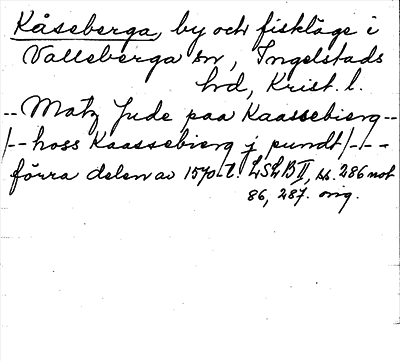 Kåseberga, by och fiskläge i
Valleberga sn, Ingelstads
hrd, Krist. l.
-- Matz Jude paa Kaassebierg --
/-- hoss Kaassebierg j pundt/---
förra delen av 1570-t. LSLB II, ss. 286 not
86, 287. orig.